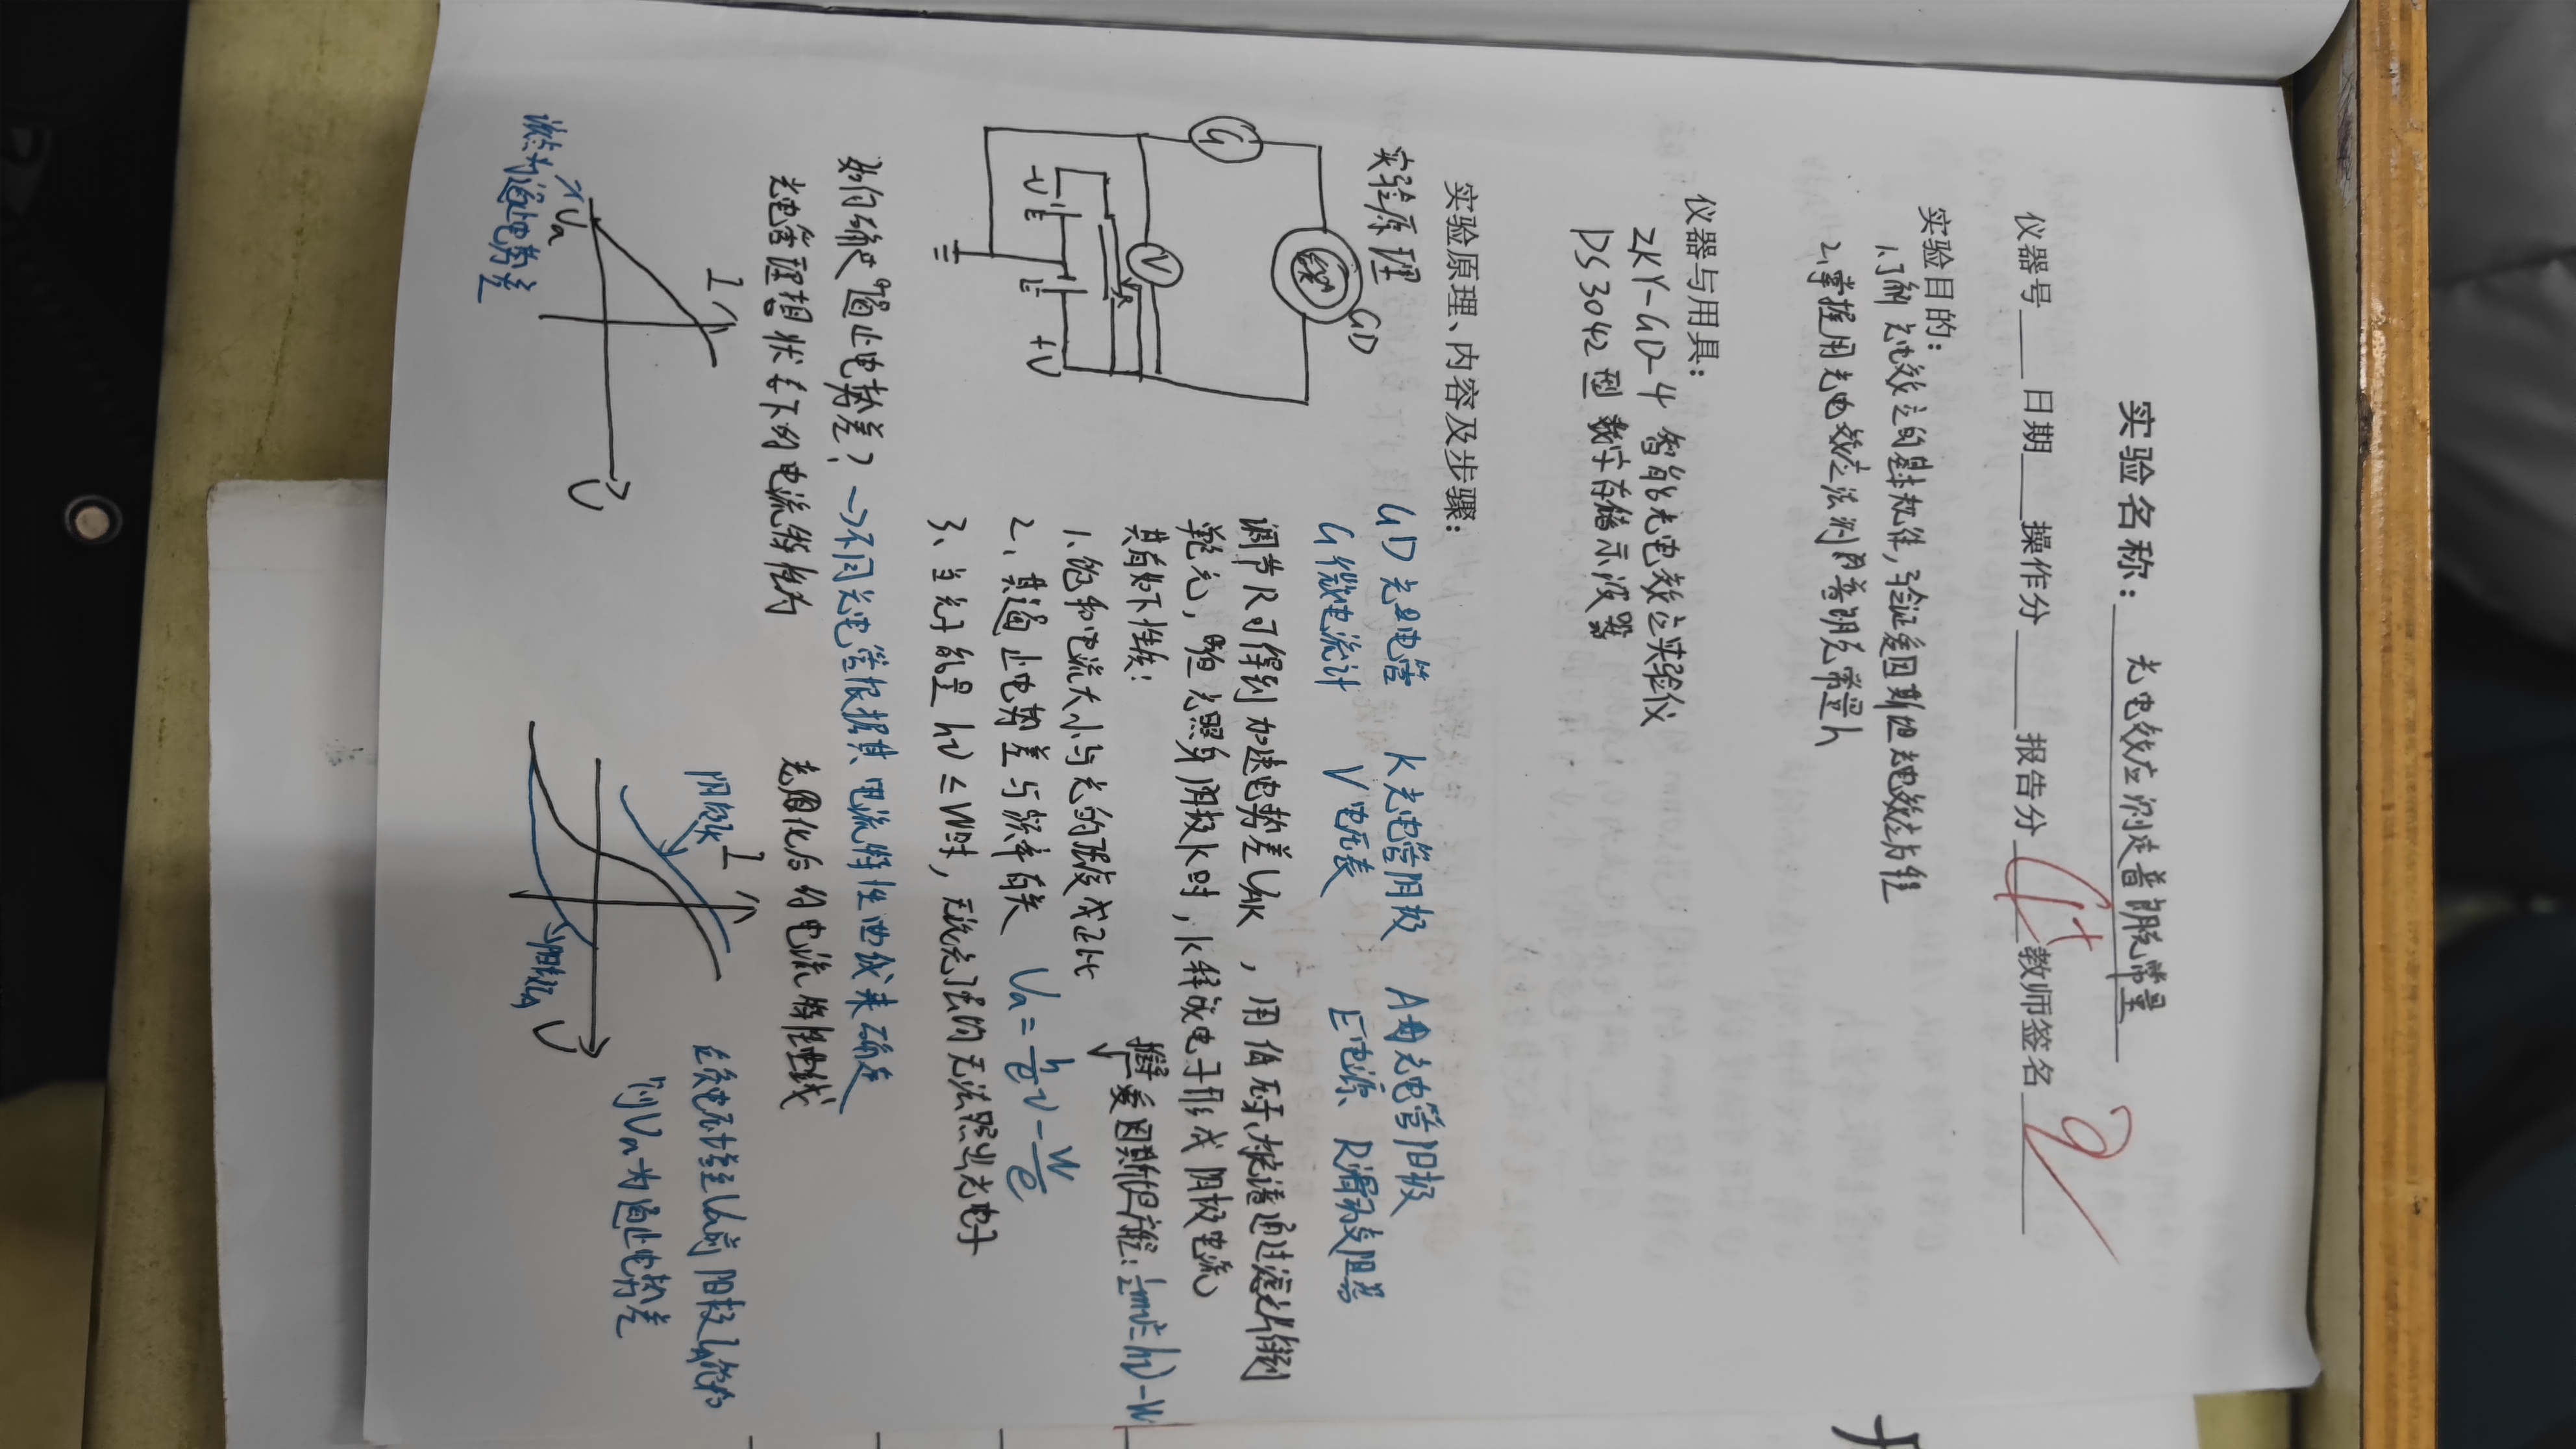 实验名称：光电效应测定普朗克常量
仪器号 日期 操作分 报告分 教师签名
实验目的：
1.了解光电效应的基本规律，验证爱因斯坦光电效应方程
2.掌握用光电效应法测 普朗克常量h
仪器与用具：
ZKY-GD-4 智能光电效应实验仪
DS3042型 数字存储示波器
实验原理、内容及步骤：
实验原理
GD光电管 K光电管阴极 A 光电管阳极
G微电流计 V电压表 E电源 R滑动变阻器
GD
G
V
R
-V E E +V
调节R可得到加速电势差UAK，用低压汞 通过滤光片得到
单色光， 光照射阴极K时，K释放电子形成阴极电流
具有如下性质：
爱因斯坦方程：½mv²=hν-W
1、饱和电流大小与光的强度成正比
2、其遏止电势差与频率有关 Ua=h/e ν-W/e
3、当光子能量hν≤W时，无论光强均无法照出光电子
如何确定遏止电势差？→不同光电管根据其电流特性曲线来确定
光电管理想状态下的电流特性为
老化后的电流特性曲线
I
U
Ua
该点为遏止电势差
I
阴极IK
U
阳极IA
在负电压 至Ua前阳极IA
则Ua为遏止电势差